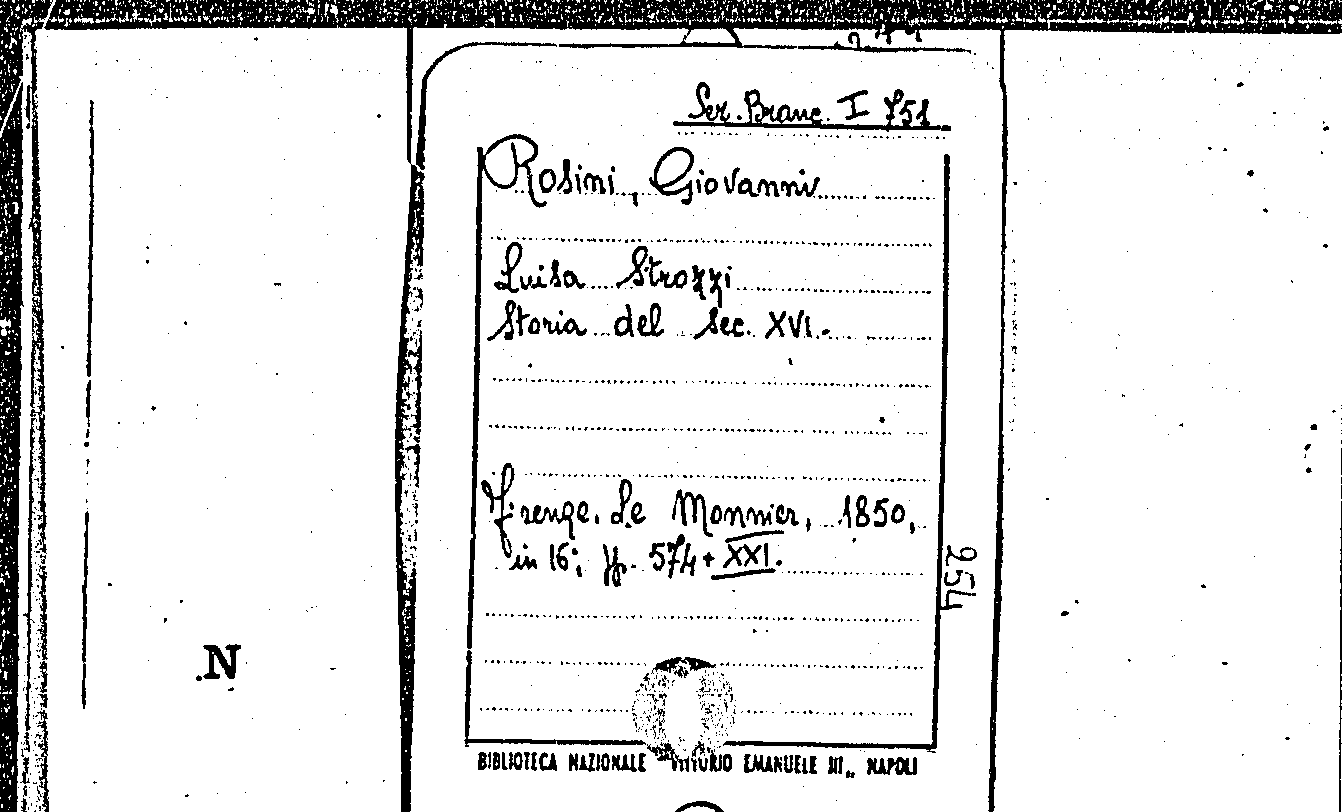 Ser. Branc. I 751
Rosini, Giovanni
Luisa Strozzi
Storia del Sec. XVI.
Firenze. Le Monnier, 1850,
in 16°; pp. 574 + XXI.
254
N
BIBLIOTECA NAZIONALE "VITTORIO EMANUELE III„ NAPOLI